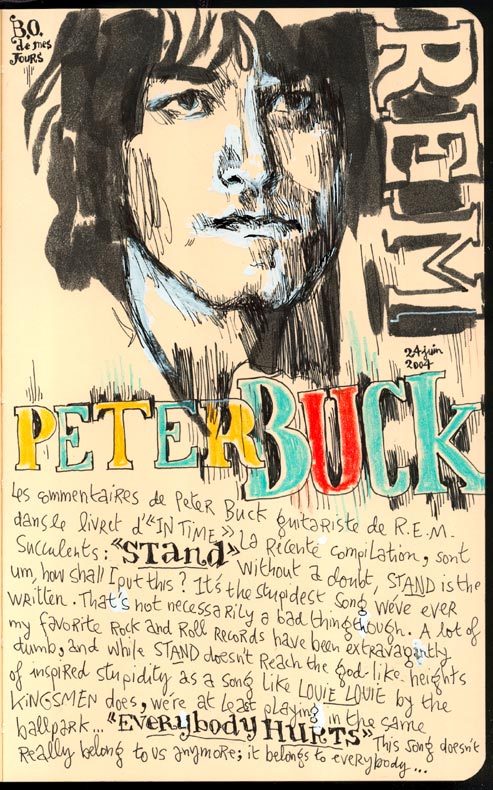 B.O.
de mes
JOURS
REM
24 juin
2004
PETER BUCK
Les commentaires de Peter Buck guitariste de R.E.M.
dans le livret d'"IN TIME", La Récente compilation, sont
Succulents: "STAND" Without a doubt, STAND is the
um, how shall I put this? It's the stupidest song we've ever
written. That's not necessarily a bad thing though. A lot of
my favorite Rock and Roll Records have been extravagantly
dumb, and while STAND doesn't Reach the god-like heights
of inspired stupidity as a song like LOUIE LOUIE by the
KINGSMEN does, we're at least playing in the same
ballpark... "EVERYBODY HURTS" This song doesn't
Really belong to us anymore; it belongs to everybody...